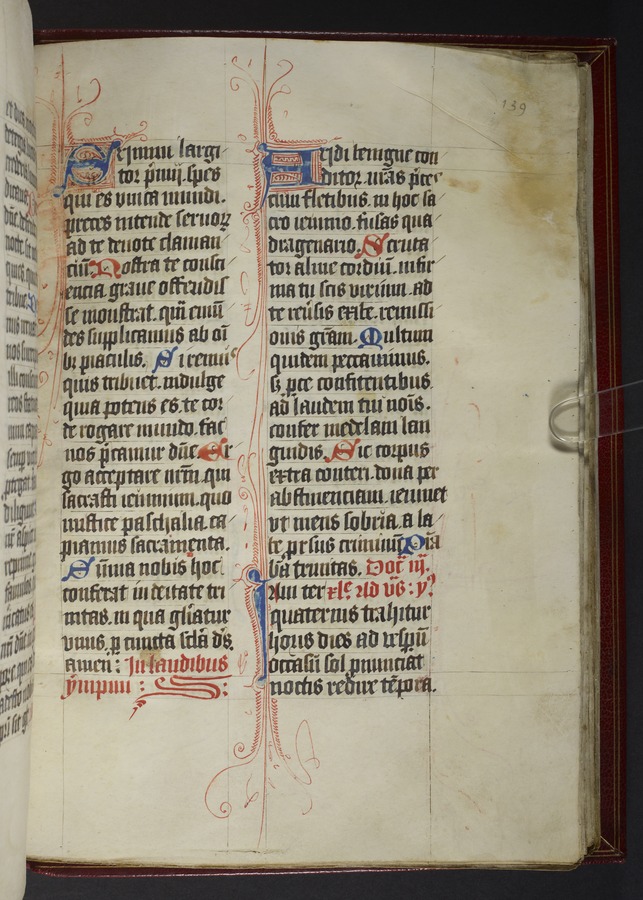 139
Eiunii largi
tor p̄mij. spes
qui es vnica mundi.
preces intende seruoꝝ
ad te deuote claman
ciū. Nostra te consci
encia graue offendisse
se monstrat. quā emū
des supplicamus ab oī
bꝫ piaculis. Si remiis
quis tribuet. indulge
quia potens es. te cor
de rogare mundo. fac
nos p̄camur dn̄e. Er
go acceptare nr̄m. qui
sacrasti ieiunium. quo
mistice paschalia. ca
piamus sacramenta.
Sūma nobis hoc
conferat in deitate tri
nitas. in qua gl̄iatur
vnus. ꝑ cuncta sc̄la d's.
amen: In laudibus
ympnu:
Audi benigne con
ditor. nr̄as p̄ces
cum fletibus. in hoc sa
cro ieiunio. fusas qua
dragenario. Scruta
tor alme cordiū. infir
ma tu scis virium. ad
te reūsis exibe. remissi
onis gr̄am. Multum
quidem peccauimus.
sꝫ ꝑce confitentibus.
ad laudem tui noīs.
confer medelam lan
guidis. Sic corpus
extra conteri. dona per
abstinenciam. ieiunet
vt mens sobria. a la
be prsus criminū. P̄sta
bēa trinitas. Doc̄ iij.
Iam ter
quaternis trahitur
horis dies ad vesperū
occasū sol pnunciat
noctis redire tēpora.